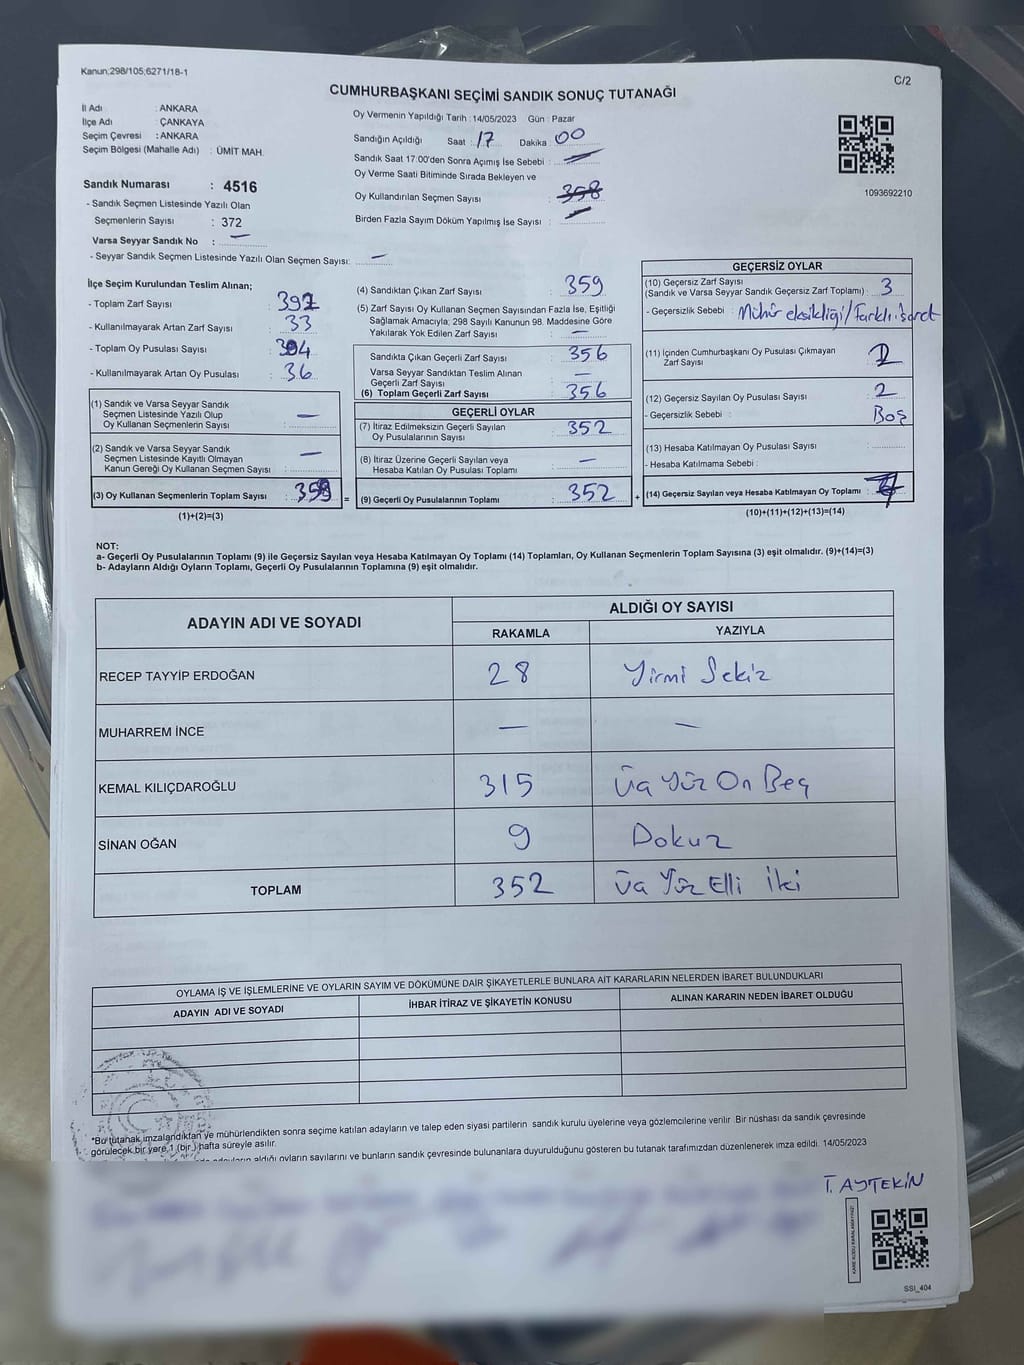 Kanun;298/105;6271/18-1
C/2
CUMHURBAŞKANI SEÇİMİ SANDIK SONUÇ TUTANAĞI
İl Adı : ANKARA
İlçe Adı : ÇANKAYA
Seçim Çevresi : ANKARA
Seçim Bölgesi (Mahalle Adı) : ÜMİT MAH.
Oy Vermenin Yapıldığı Tarih : 14/05/2023 Gün : Pazar
Sandığın Açıldığı Saat : 17 Dakika : 00
Sandık Saat 17:00'den Sonra Açılmış İse Sebebi : —
Oy Verme Saati Bitiminde Sırada Bekleyen ve
Oy Kullandırılan Seçmen Sayısı : 358
Birden Fazla Sayım Döküm Yapılmış İse Sayısı : —
1093692210
Sandık Numarası : 4516
- Sandık Seçmen Listesinde Yazılı Olan
Seçmenlerin Sayısı : 372
Varsa Seyyar Sandık No : —
- Seyyar Sandık Seçmen Listesinde Yazılı Olan Seçmen Sayısı: —
İlçe Seçim Kurulundan Teslim Alınan;
- Toplam Zarf Sayısı :
- Kullanılmayarak Artan Zarf Sayısı : 33
- Toplam Oy Pusulası Sayısı :
- Kullanılmayarak Artan Oy Pusulası : 36
(1) Sandık ve Varsa Seyyar Sandık
Seçmen Listesinde Yazılı Olup
Oy Kullanan Seçmenlerin Sayısı : —
(2) Sandık ve Varsa Seyyar Sandık
Seçmen Listesinde Kayıtlı Olmayan
Kanun Gereği Oy Kullanan Seçmen Sayısı : —
(3) Oy Kullanan Seçmenlerin Toplam Sayısı : =
(1)+(2)=(3)
(4) Sandıktan Çıkan Zarf Sayısı : 359
(5) Zarf Sayısı Oy Kullanan Seçmen Sayısından Fazla İse, Eşitliği
Sağlamak Amacıyla, 298 Sayılı Kanunun 98. Maddesine Göre
Yakılarak Yok Edilen Zarf Sayısı : —
Sandıkta Çıkan Geçerli Zarf Sayısı : 356
Varsa Seyyar Sandıktan Teslim Alınan
Geçerli Zarf Sayısı : —
(6) Toplam Geçerli Zarf Sayısı : 356
GEÇERLİ OYLAR
(7) İtiraz Edilmeksizin Geçerli Sayılan
Oy Pusulalarının Sayısı : 352
(8) İtiraz Üzerine Geçerli Sayılan veya
Hesaba Katılan Oy Pusulası Toplamı : —
(9) Geçerli Oy Pusulalarının Toplamı : 352 +
GEÇERSİZ OYLAR
(10) Geçersiz Zarf Sayısı : 3
(Sandık ve Varsa Seyyar Sandık Geçersiz Zarf Toplamı)
- Geçersizlik Sebebi : Mühür eksikliği/Farklı işaret
(11) İçinden Cumhurbaşkanı Oy Pusulası Çıkmayan
Zarf Sayısı :
(12) Geçersiz Sayılan Oy Pusulası Sayısı : 2
- Geçersizlik Sebebi : Boş
(13) Hesaba Katılmayan Oy Pusulası Sayısı :
- Hesaba Katılmama Sebebi :
(14) Geçersiz Sayılan veya Hesaba Katılmayan Oy Toplamı :
(10)+(11)+(12)+(13)=(14)
NOT:
a- Geçerli Oy Pusulalarının Toplamı (9) ile Geçersiz Sayılan veya Hesaba Katılmayan Oy Toplamı (14) Toplamları, Oy Kullanan Seçmenlerin Toplam Sayısına (3) eşit olmalıdır. (9)+(14)=(3)
b- Adayların Aldığı Oyların Toplamı, Geçerli Oy Pusulalarının Toplamına (9) eşit olmalıdır.
ADAYIN ADI VE SOYADI ALDIĞI OY SAYISI
RAKAMLA YAZIYLA
RECEP TAYYİP ERDOĞAN 28 Yirmi Sekiz
MUHARREM İNCE — —
KEMAL KILIÇDAROĞLU 315 Üç Yüz On Beş
SİNAN OĞAN 9 Dokuz
TOPLAM 352 Üç Yüz Elli İki
OYLAMA İŞ VE İŞLEMLERİNE VE OYLARIN SAYIM VE DÖKÜMÜNE DAİR ŞİKAYETLERLE BUNLARA AİT KARARLARIN NELERDEN İBARET BULUNDUKLARI
ADAYIN ADI VE SOYADI İHBAR İTİRAZ VE ŞİKAYETİN KONUSU ALINAN KARARIN NEDEN İBARET OLDUĞU
*Bu tutanak imzalandıktan ve mühürlendikten sonra seçime katılan adayların ve talep eden siyasi partilerin sandık kurulu üyelerine veya gözlemcilerine verilir. Bir nüshası da sandık çevresinde
görülecek bir yere 1 (bir) hafta süreyle asılır.
aldığı oyların sayılarını ve bunların sandık çevresinde bulunanlara duyurulduğunu gösteren bu tutanak tarafımızdan düzenlenerek imza edildi. 14/05/2023
T. AYTEKİN
KARE KODU KARALAMAYINIZ!
SSI_404